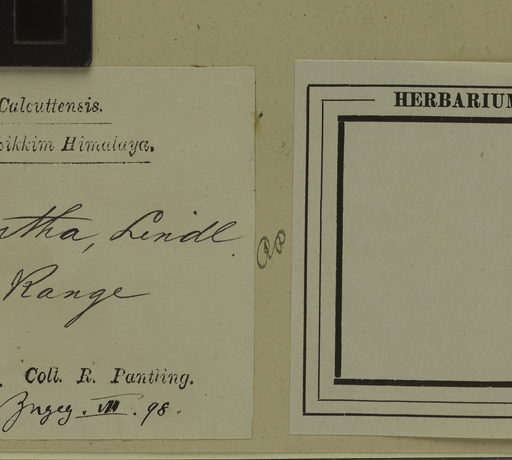 Calcuttensis.
Sikkim Himalaya.
ntha, Lindl
Range
Coll. R. Pantling.
VIII. 98.
HERBARIUM